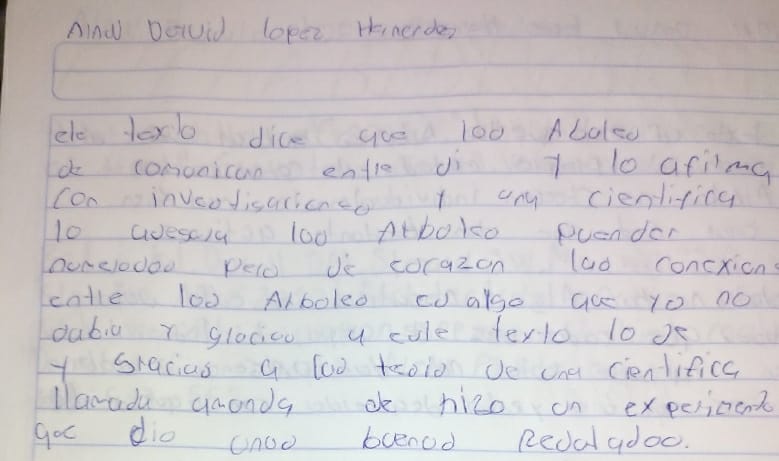 Alnal David lopez Hernendez
ele texto dice que loo Abaleo
de comunican entle di y lo afilma
con inveotisacioneo y una cientifica
lo avesela loo Atboleo puender
pero de corazon lao conexion
entle loo Alboleo eo algo que yo no
oabia y glacias a eote texto lo se
y Gracias a lao teoia de una cientifica
llamada amanda de hizo un experimento
que dio unoo buenod Redaladoo.